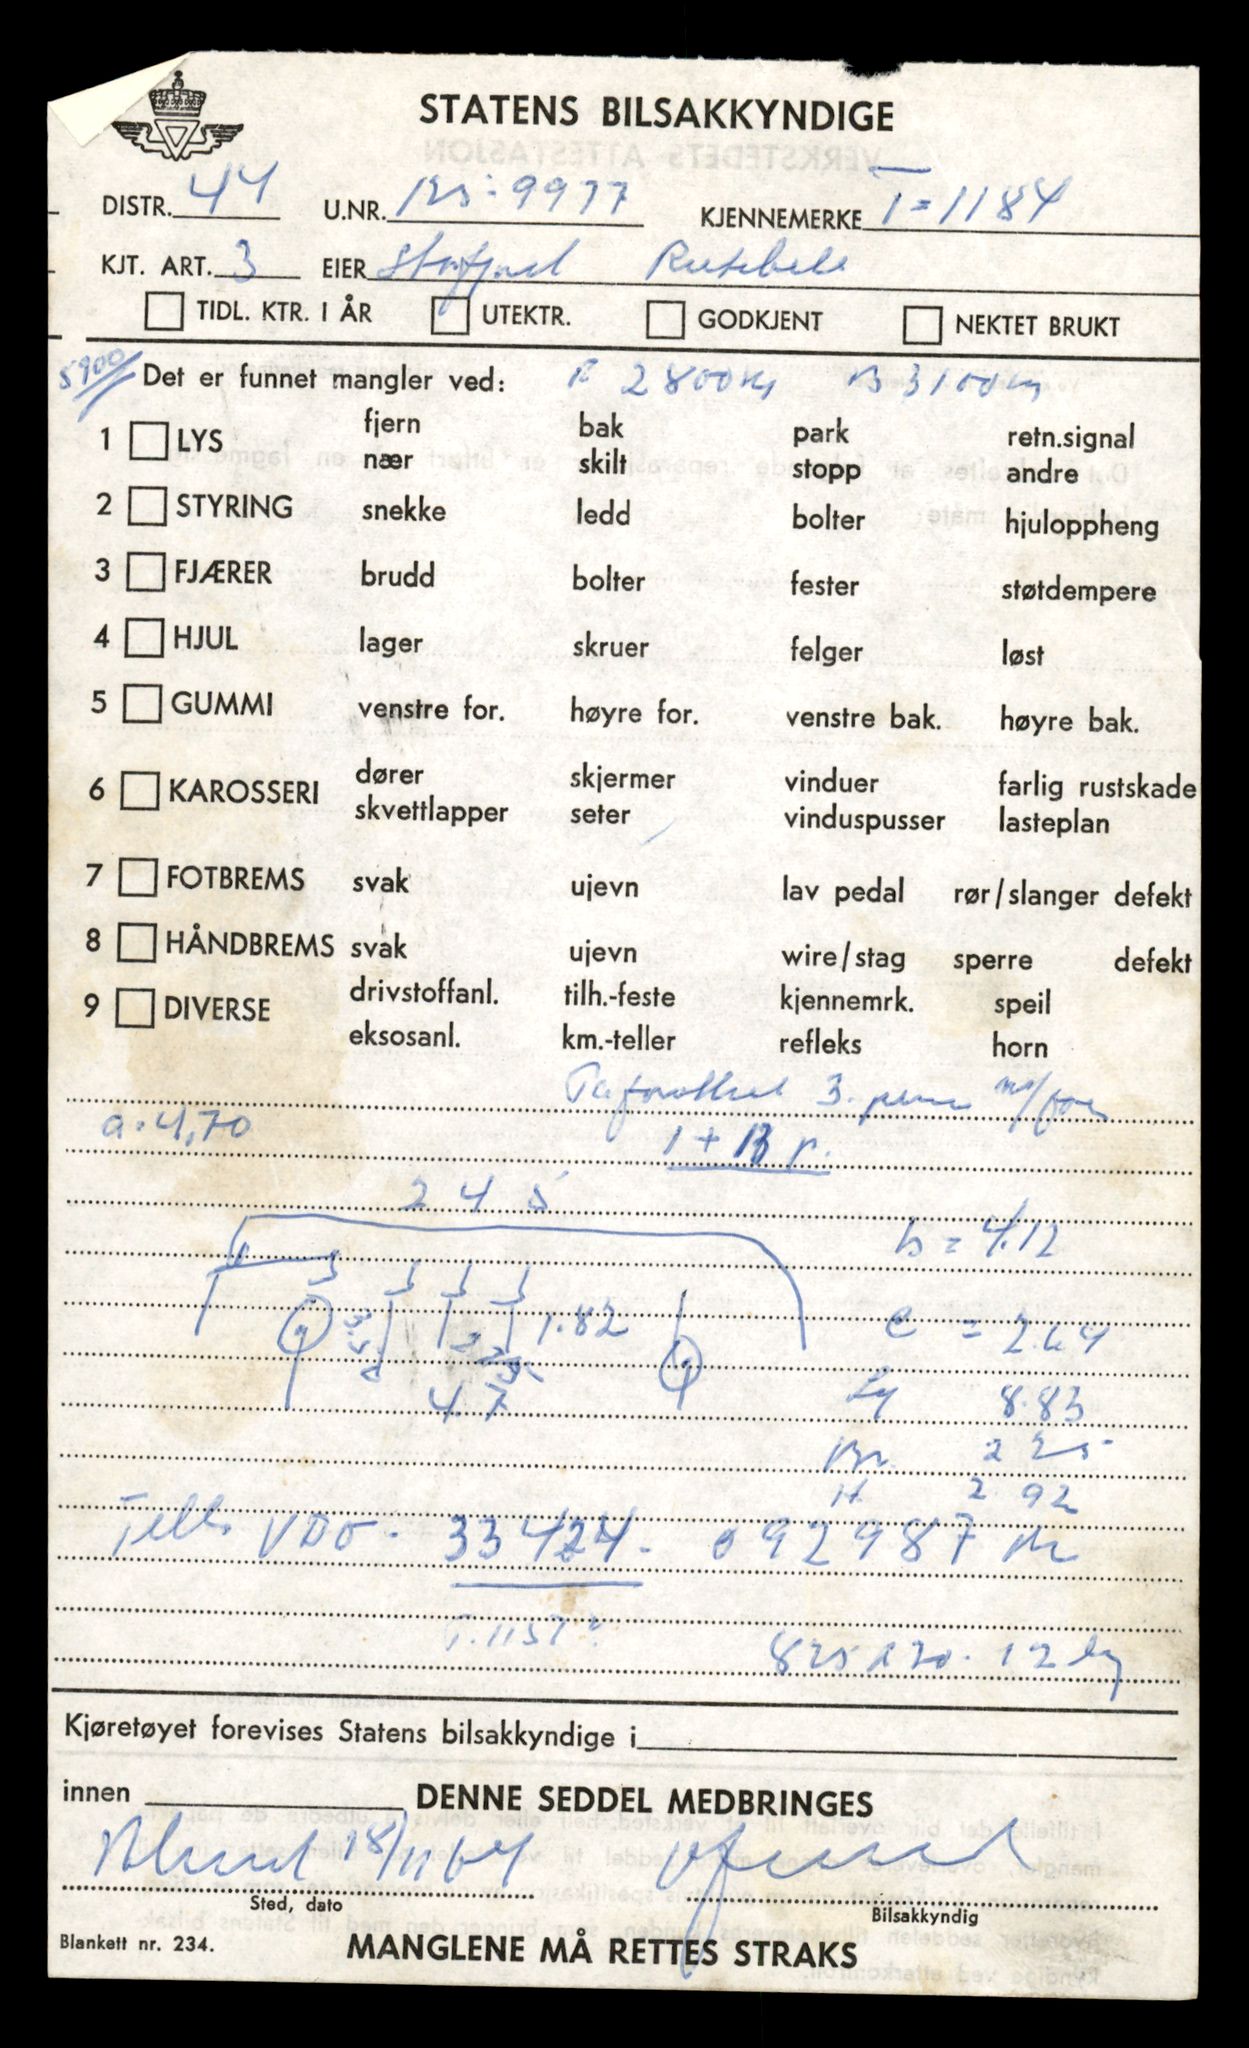 STATENS BILSAKKYNDIGE
DISTR. 44 U.NR. 125-9977 KJENNEMERKE T=1184
KJT. ART. 3 EIER
TIDL. KTR. I ÅR UTEKTR. GODKJENT NEKTET BRUKT
5900 Det er funnet mangler ved: F 2800 kg B 3100 kg
1 LYS fjern bak park retn.signal
nær skilt stopp andre
2 STYRING snekke ledd bolter hjuloppheng
3 FJÆRER brudd bolter fester støtdempere
4 HJUL lager skruer felger løst
5 GUMMI venstre for. høyre for. venstre bak. høyre bak.
6 KAROSSERI dører skjermer vinduer farlig rustskade
skvettlapper seter vinduspusser lasteplan
7 FOTBREMS svak ujevn lav pedal rør/slanger defekt
8 HÅNDBREMS svak ujevn wire/stag sperre defekt
9 DIVERSE drivstoffanl. tilh.-feste kjennemrk. speil
eksosanl. km.-teller refleks horn
3.
a. 4,70
1 +
245
b = 4.12
1.82
= 2.64
4.7
Lg 8.83
Br 2 25
H 2.92
VDO. 33424. 092987
T.1157
825 x 20. 12
Kjøretøyet forevises Statens bilsakkyndige i
innen DENNE SEDDEL MEDBRINGES
18/11 64
Sted, dato Bilsakkyndig
Blankett nr. 234. MANGLENE MÅ RETTES STRAKS